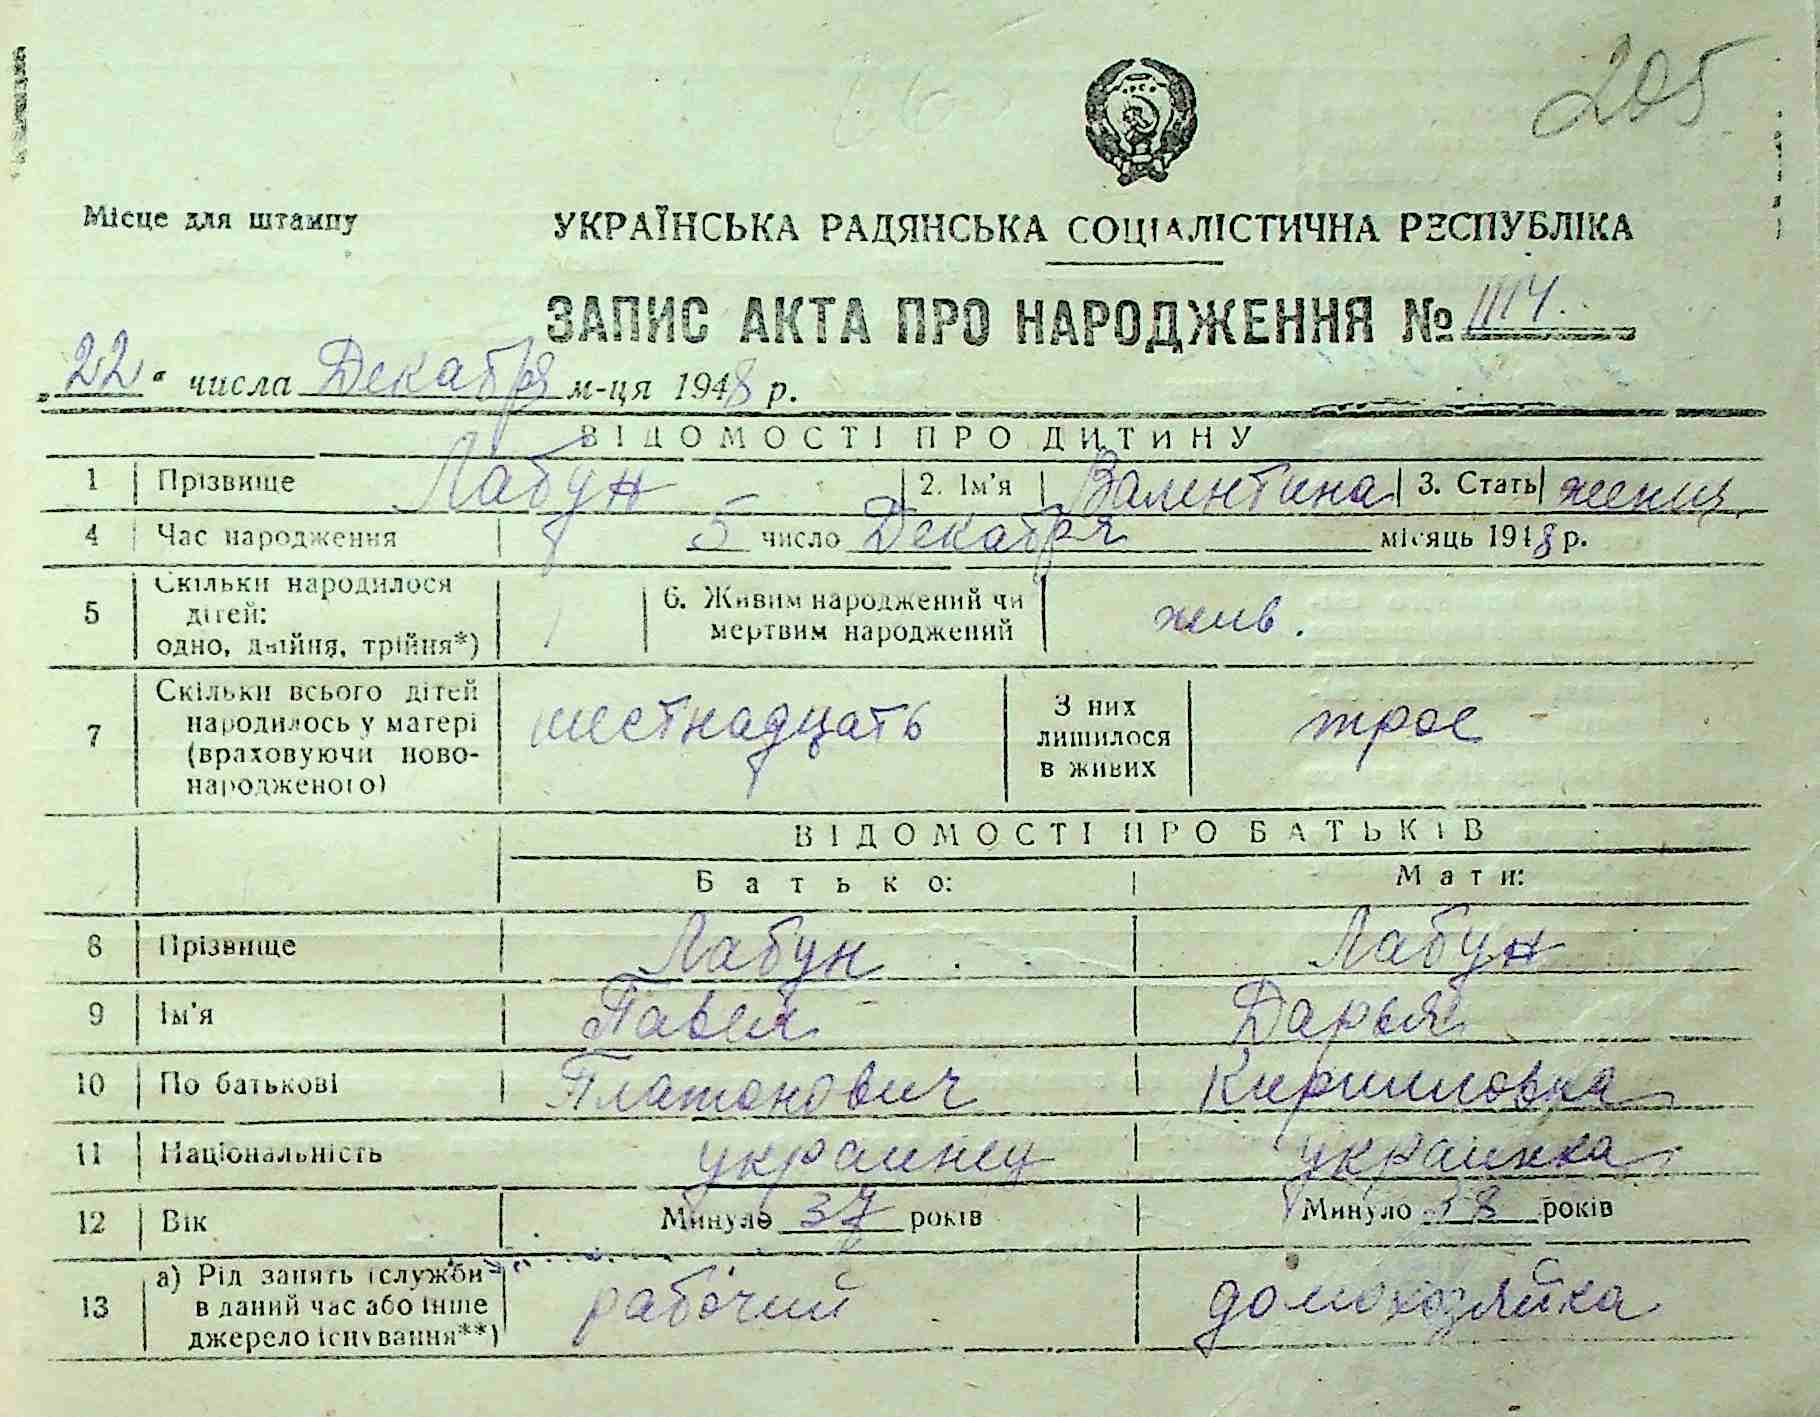 205
Місце для штампу
УКРАЇНСЬКА РАДЯНСЬКА СОЦІАЛІСТИЧНА РЕСПУБЛІКА
ЗАПИС АКТА ПРО НАРОДЖЕННЯ № 1114.
„22“ числа Декабря м-ця 1948 р.
ВІДОМОСТІ ПРО ДИТИНУ
1 Прізвище Лабун 2. Ім'я Валентина 3. Стать женщ.
4 Час народження 5 число Декабря місяць 1948 р.
5 Скільки народилося дітей: одно, двійня, трійня*) 1 6. Живим народжений чи мертвим народжений жив.
7 Скільки всього дітей народилось у матері (враховуючи новонародженого) шестнадцать З них лишилося в живих трое
ВІДОМОСТІ ПРО БАТЬКІВ
Батько: Мати:
8 Прізвище Лабун Лабун
9 Ім'я Павел Дарья
10 По батькові Платонович Кирилловна
11 Національність украинец украинка
12 Вік Минуло 37 років Минуло 38 років
13 а) Рід занять (служби в даний час або інше джерело існування**) рабочий домохозяйка